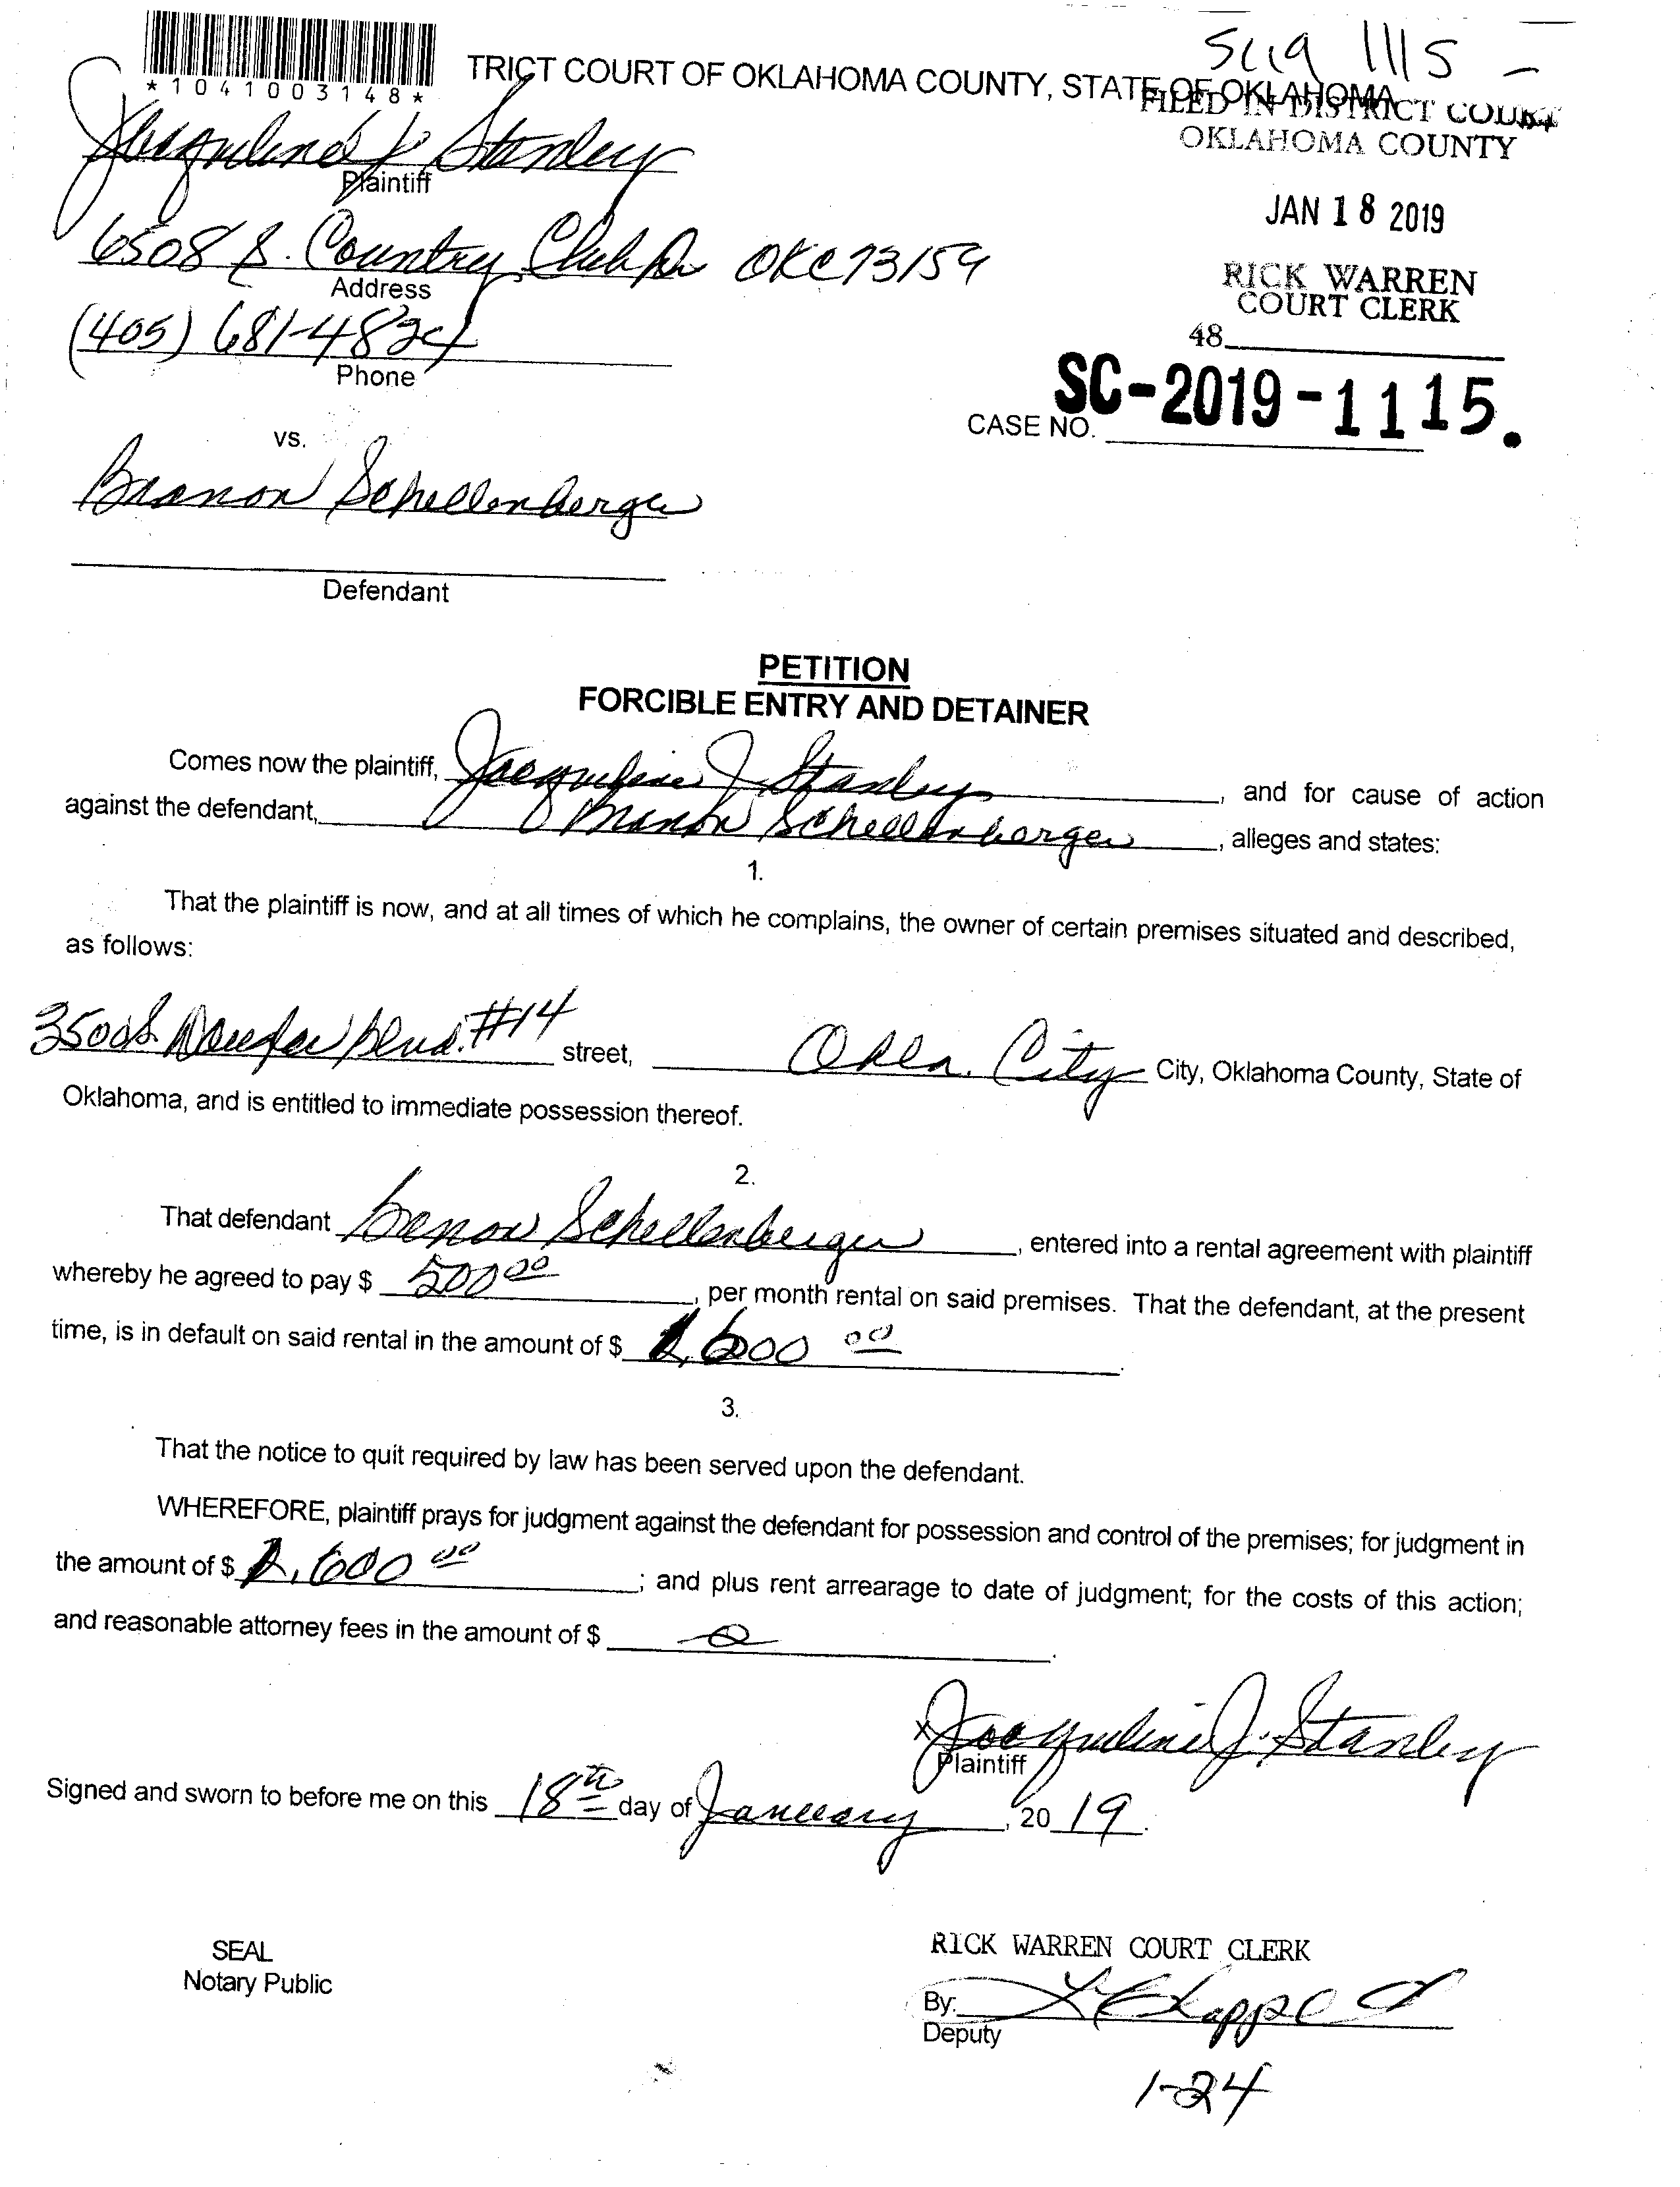 SC19 1115 -
*1041003148*
TRICT COURT OF OKLAHOMA COUNTY, STATE OF OKLAHOMA
FILED IN DISTRICT COURT
OKLAHOMA COUNTY
Jacqueline J. Stanley
Plaintiff
JAN 18 2019
6508 S. Country Club Dr OKC 73159
Address
RICK WARREN
COURT CLERK
(405) 681-4824
Phone
48
CASE NO. SC-2019-1115.
vs.
Branon Schellenberger
Defendant
PETITION
FORCIBLE ENTRY AND DETAINER
Comes now the plaintiff, Jacqueline J. Stanley, and for cause of action
against the defendant, Branon Schellenberger, alleges and states:
1.
That the plaintiff is now, and at all times of which he complains, the owner of certain premises situated and described,
as follows:
3500 S. Blvd. #14 street, Okla. City City, Oklahoma County, State of
Oklahoma, and is entitled to immediate possession thereof.
2.
That defendant Branon Schellenberger, entered into a rental agreement with plaintiff
whereby he agreed to pay $ 500 00, per month rental on said premises. That the defendant, at the present
time, is in default on said rental in the amount of $ 00.
3.
That the notice to quit required by law has been served upon the defendant.
WHEREFORE, plaintiff prays for judgment against the defendant for possession and control of the premises; for judgment in
the amount of $ 00; and plus rent arrearage to date of judgment; for the costs of this action;
and reasonable attorney fees in the amount of $ 0.
x Jacqueline J. Stanley
Plaintiff
Signed and sworn to before me on this 18th day of January, 2019.
SEAL
Notary Public
RICK WARREN COURT CLERK
By:
Deputy
1-24